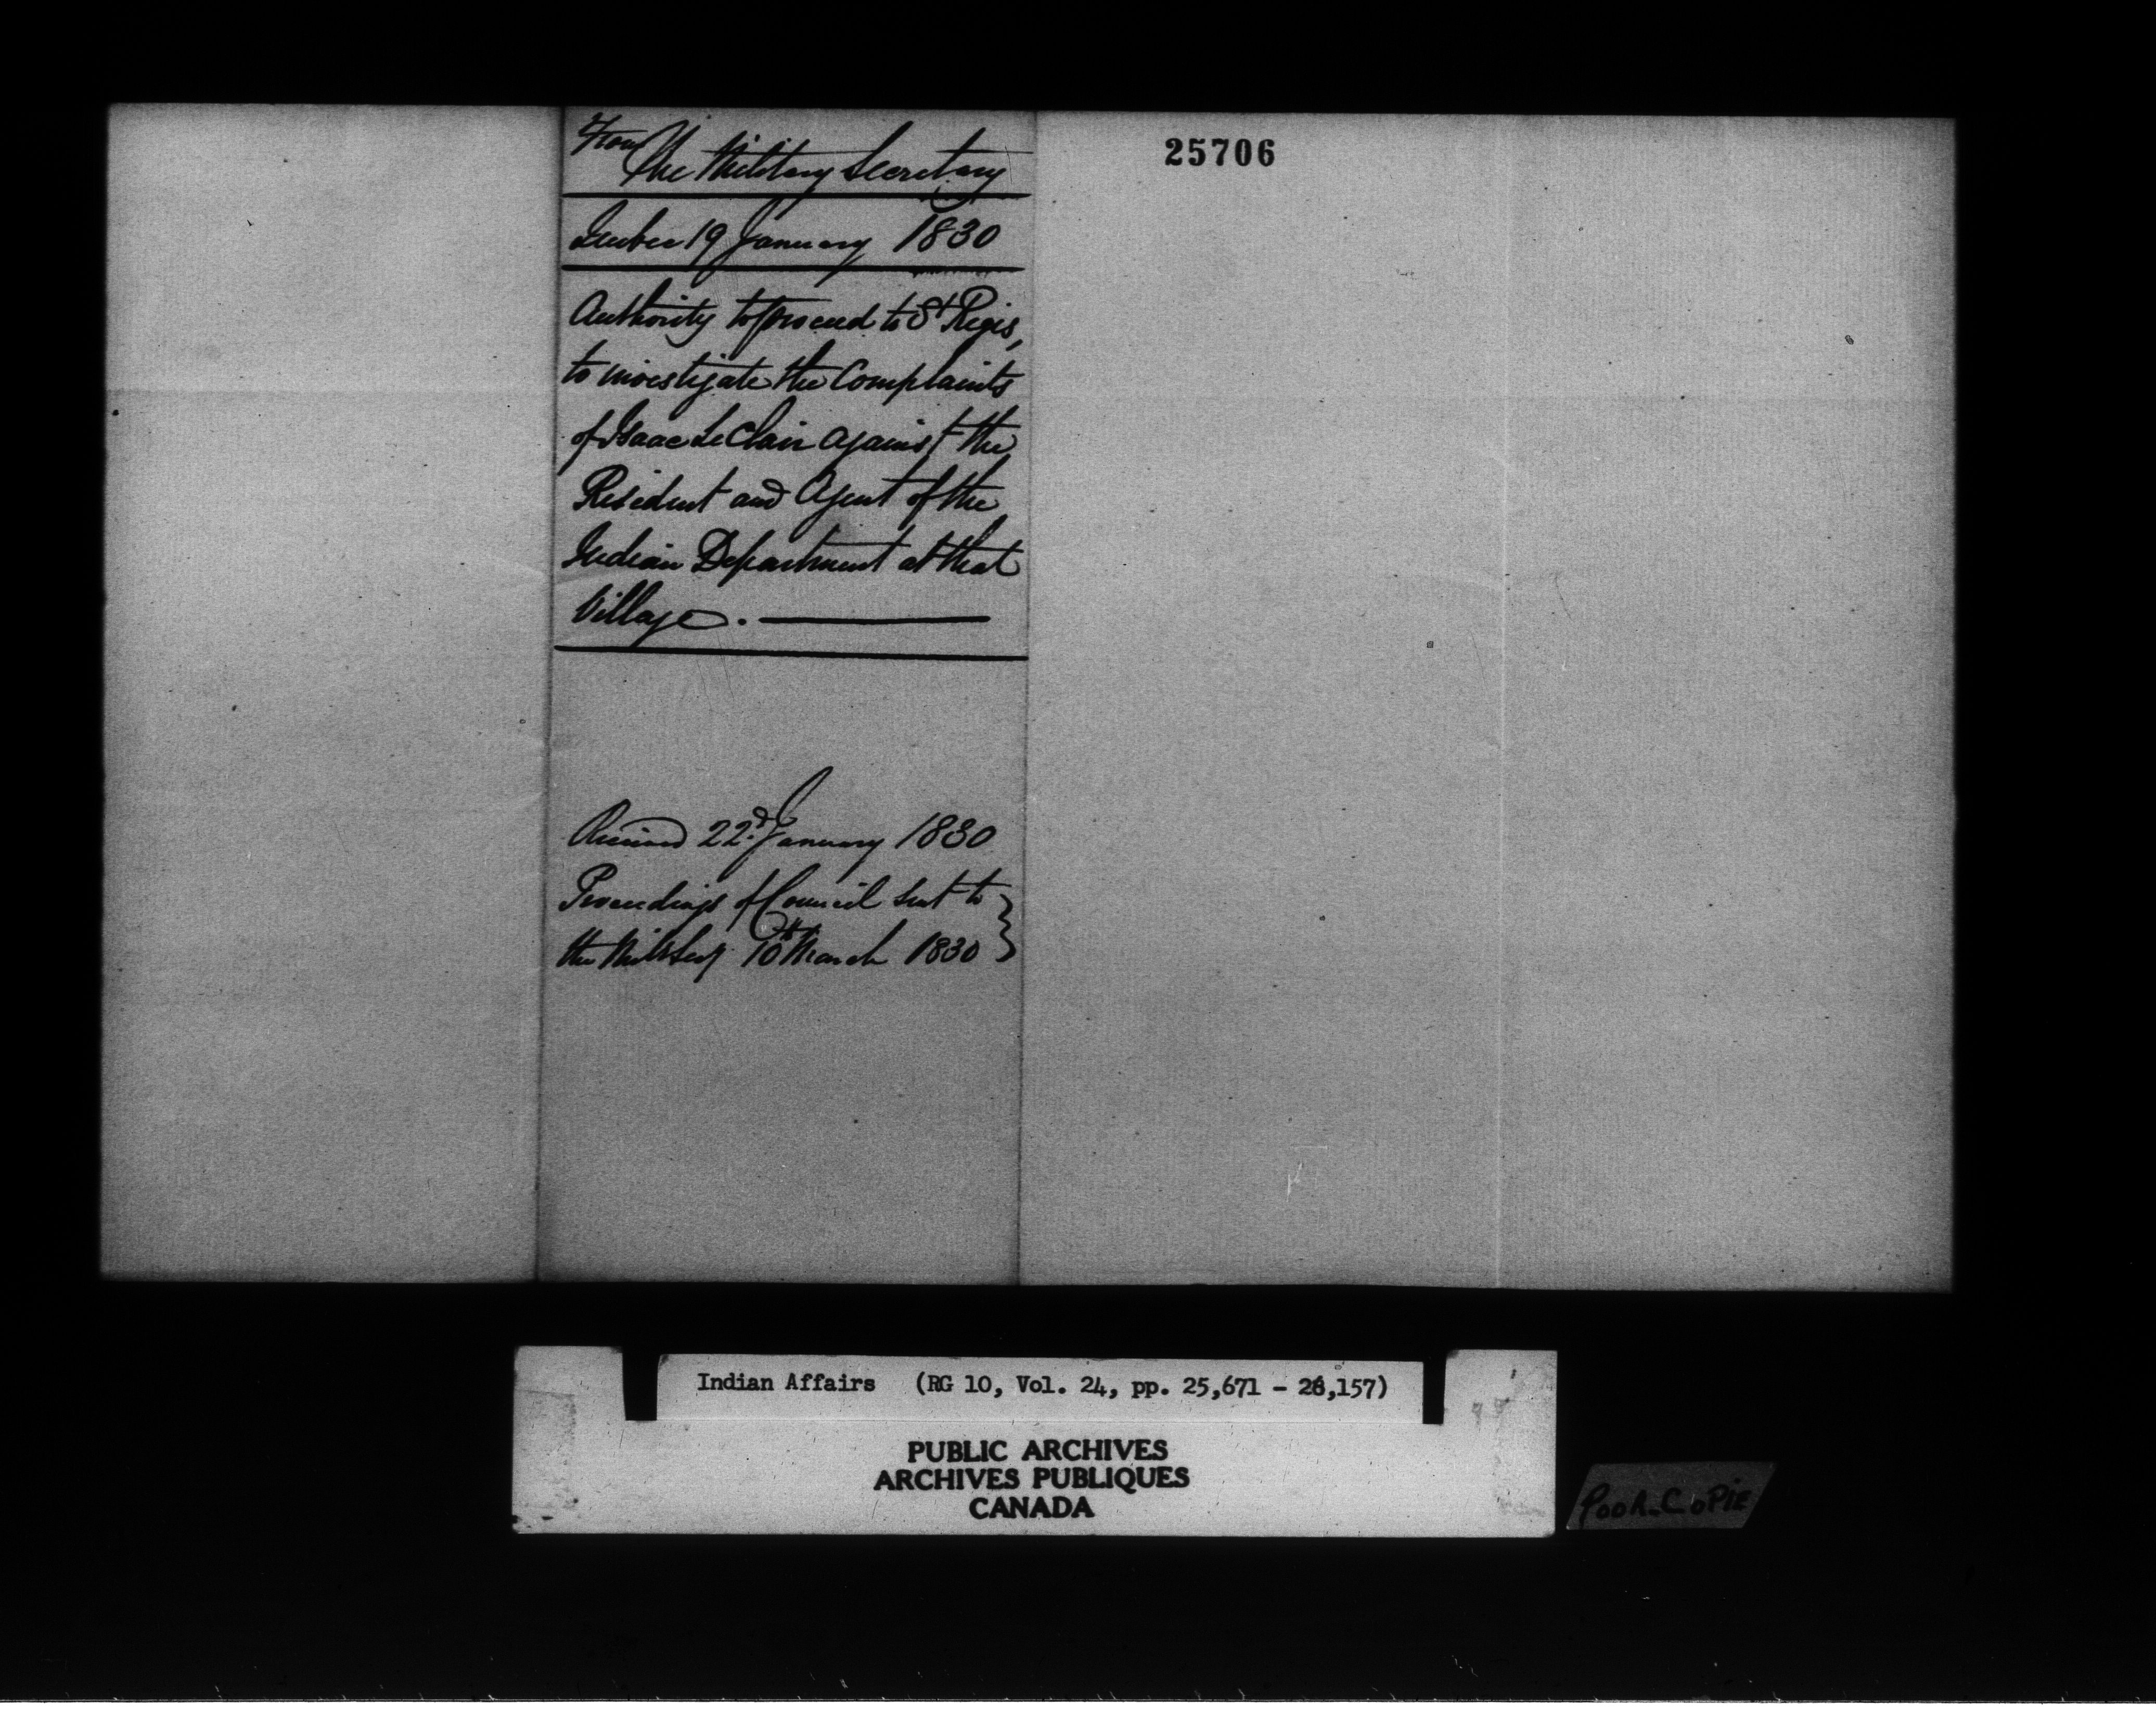 From
The Military Secretary
Quebec 19 January 1830
Authority to proceed to St Regis,
to investigate the Complaints
of Isaac LeClair against the
Resident and Agent of the
Indian Department at that
Village.
Received 22d January 1830
Proceedings of Council sent to
the Mil Secy 10th March 1830
25706
Indian Affairs (RG 10, Vol. 24, pp. 25,671 - 26,157)
PUBLIC ARCHIVES
ARCHIVES PUBLIQUES
CANADA
POOR COPIE